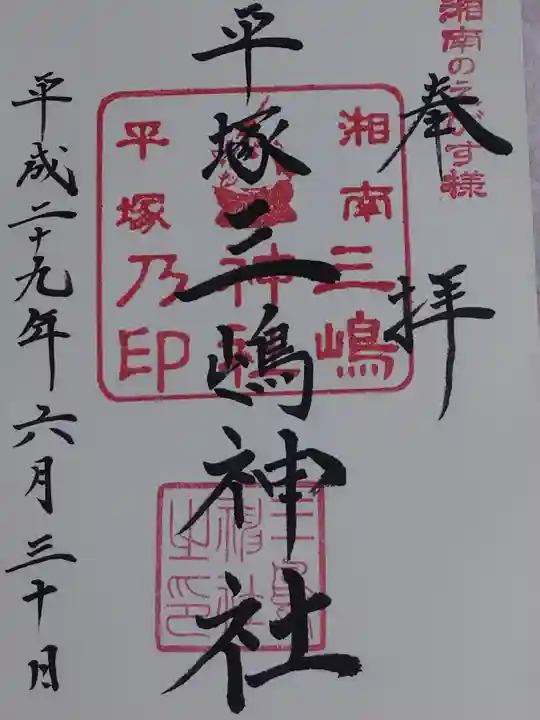 湘南のえびす様
奉拝
平塚三嶋神社
湘南三嶋
神社
平塚乃印
三島
神社
之印
平成二十九年六月三十日